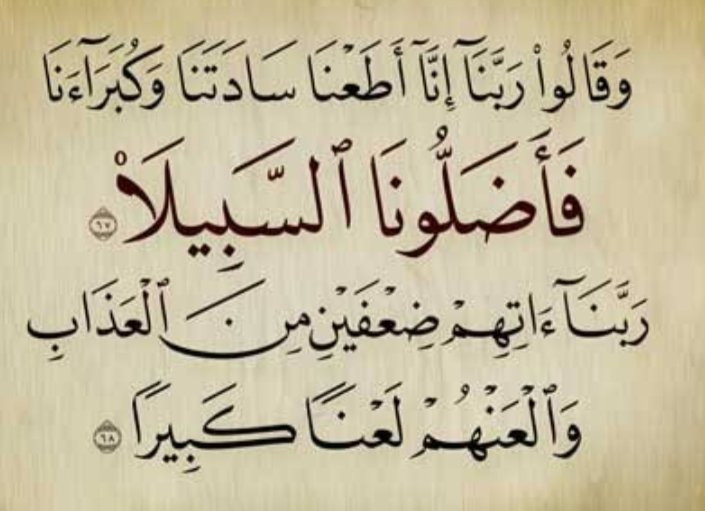 وَقَالُوا۟ رَبَّنَآ إِنَّآ أَطَعْنَا سَادَتَنَا وَكُبَرَآءَنَا
فَأَضَلُّونَا ٱلسَّبِيلَا۠ ٦٧
رَبَّنَآ ءَاتِهِمْ ضِعْفَيْنِ مِنَ ٱلْعَذَابِ
وَٱلْعَنْهُمْ لَعْنًا كَبِيرًا ٦٨